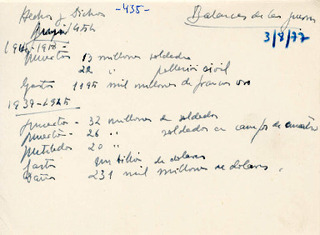 Hechos y Dichos -435- Balances de las guerras
3/8/77
(1914-1918)-
muertos 13 millones soldados
22 " población civil
Gastos 1195 mil millones de francos oro
1939-1945
muertos - 32 millones de soldados
muertos - 26 " soldados en campos de
Mutilados 20 "
Gastos un billón de dolares
Daños 231 mil millones de dolares.